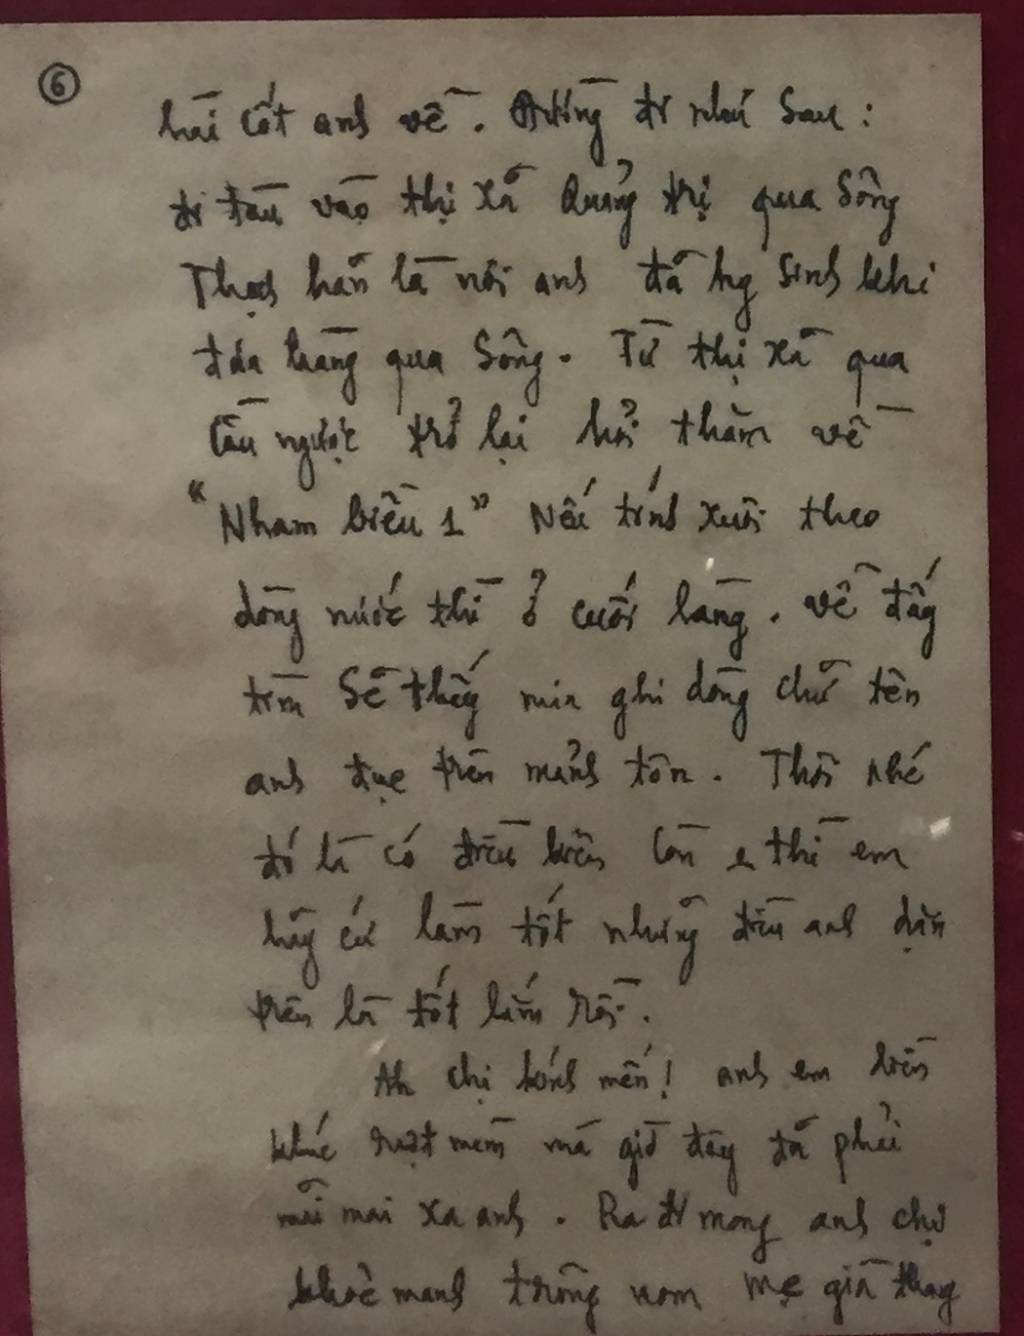 6
hài cốt anh về. Đường đi như sau:
đi tàu vào thị xã Quảng trị qua Sông
Thạch hãn là nơi anh đã hy sinh khi
đưa hàng qua Sông. Từ thị xã qua
Cầu ngược trở lại hỏi thăm về
"Nham biều 1" Nếu tính xuôi theo
dòng nước thì ở cuối làng. về đấy
tìm sẽ thấy mìn ghi dòng chữ tên
anh đục trên mảnh tôn. Thôi nhé
đó là có điều kiện Còn thì em
hãy cứ làm tốt những điều anh dặn
trên là tốt lắm rồi.
Anh chị kính mến! anh em liền
khúc ruột mềm mà giờ đây đã phải
mãi mãi xa anh. Ra đi mong anh chị
khỏe mạnh trông nom mẹ già thay